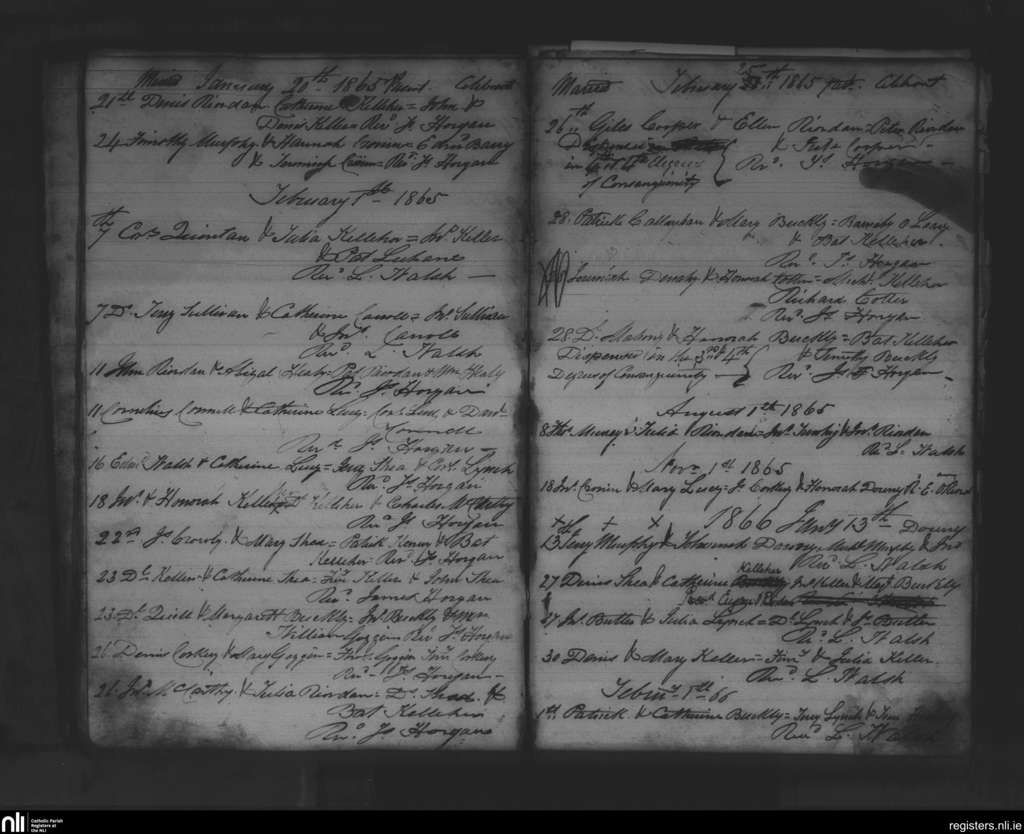 Married January 20th 1865 Present Celebrant
21st Denis Riordan Catherine Kelleher = John &
Denis Kelleher Revd Js Horgan
24 Timothy Murphy & Hannah Cronin = Edmd Barry
& Jeremiah Cronin = Revd Js Horgan
February 1st 1865
7th Cors Quinlan & Julia Kelleher = Jno Keller
& Pat Leehane
Revd L. Walsh
7 Dl Terry Sullivan & Catherine Carroll = Jno Sullivan
& Jno Carroll
Revd L. Walsh
11 Wm Riordan & Abigal Healy = Riordan & Wm Healy
Revd Js Horgan
11 Cornelius Connell & Catherine Lucy = Cors Lucy & Danl
Connell
Revd Js Horgan
16 Edmd Walsh & Catherine Lucy = Terry Shea & Cors Lynch
Revd Js Horgan
18 Jno & Honorah Kelleher = Kelleher & Charles McCarthy
Revd Js Horgan
22nd Js Crowly & Mary Shea = Patrick Henry & Bat
Kelleher Revd Js Horgan
23 Dl Keller & Catherine Shea = Timy Keller & John Shea
Revd James Horgan
23 Dl Quill & Margarett Buckly = Jno Buckly & Wm
William Goggin Revd Js Horgan
26 Dennis Corkery & Mary Goggin = Goggin Timy Corkery
Revd Js Horgan
26 Jno McCarthy & Julia Riordan = Dl Shea &
Bat Kelleher
Revd Js Horgan
Married February 25th 1865 pat. Celebrant
26th Giles Cooper & Ellen Riordan = Peter Riordan
Dispensed in & Kate Cooper
in & 4th Degree Revd Js Horgan
of Consanguinity
28. Patrick Callaghan & Mary Buckly = O Leary
& Bat Kelleher.
Revd Js Horgan
Jeremiah & Honorah Cotter = Michl Kelleher
Richard Cotter
Revd Js Horgan
28 D. Mahony & Hannah Buckly = Bat Kelleher
Dispensed in the 3rd & 4th & Timothy Buckly
Degree of Consanguinity Revd Js Horgan
August 1st 1865
8 Thos & Julia Riordan = Jno & Jno Riordan
Rd L. Walsh
Novr 1st 1865
18 Jno Cronin & Mary Lucey = J. & Honorah Downy R. E.
1866 Jany 13th Downy
13th Terry Murphy & Johannah Downy = Michl Murphy & Jno
Revd L. Walsh
27 Denis Shea & Catherine Kelleher Jno Keller & Margt Buckly
27 Jno Butler & Julia Lynch = Dl Lynch & Js Butler
Revd L. Walsh
30 Denis & Mary Keller = Timy & Julia Keller.
Revd L Walsh
Feby 1st 66
1st Patrick & Catherine Buckly = Terry Lynch &
Revd L. Walsh
nli
Catholic Parish
Registers at
the NLI
registers.nli.ie